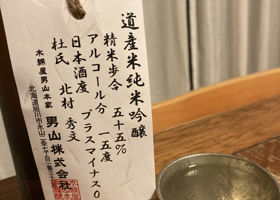 道産米純米吟醸
精米歩合 五十五%
アルコール分 一五度
日本酒度 プラスマイナス0
杜氏 北村 秀文
男山株式会社
北海道旭川市永山二条七丁目一番三十
木綿屋男山本家